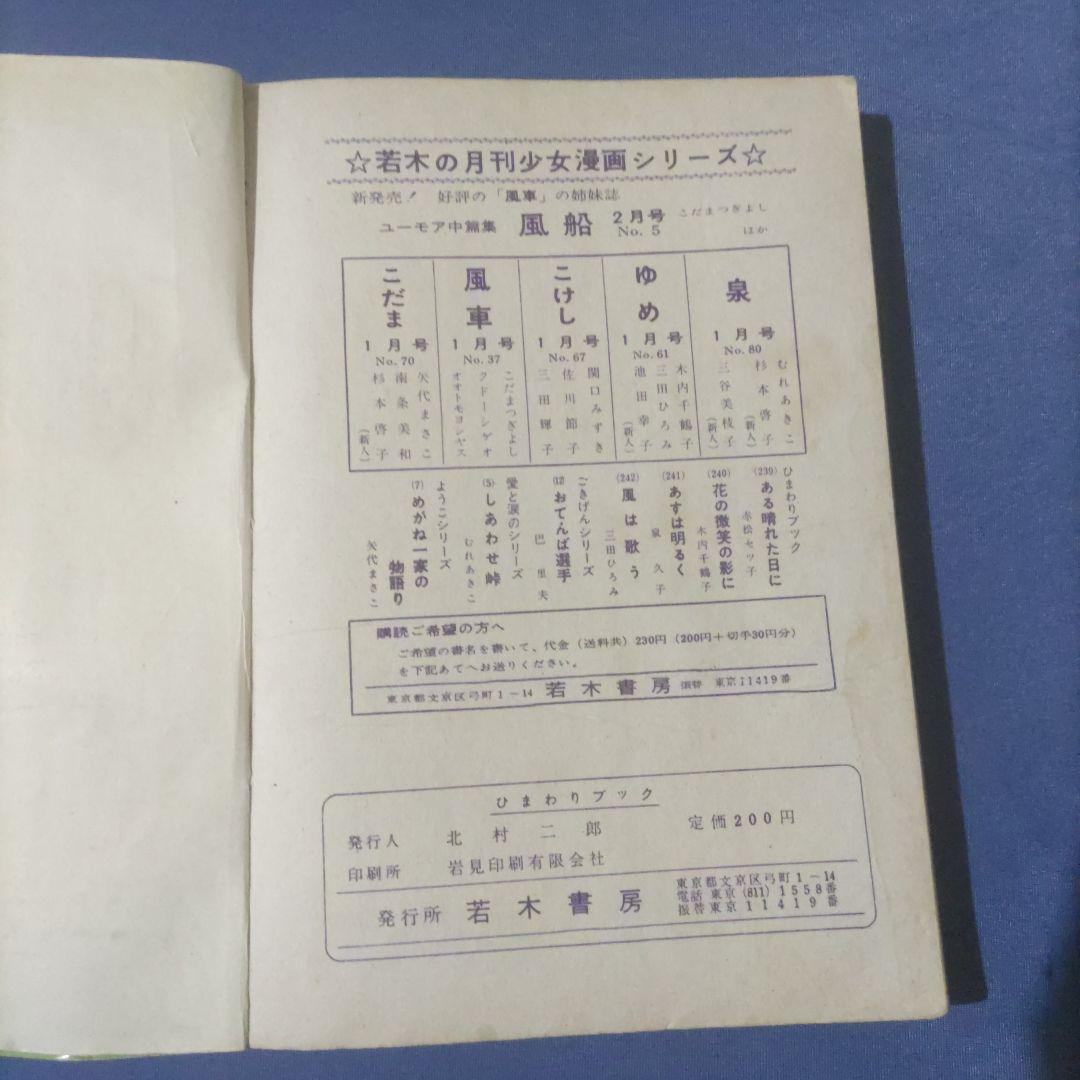 ☆若木の月刊少女漫画シリーズ☆
新発売! 好評の「風車」の姉妹誌
ユーモア中篇集 風船 2月号 No. 5 こだまつぎよし ほか
泉
1月号
No. 80
むれあきこ
杉本啓子
(新人)
三谷美枝子
(新人)
ゆめ
1月号
No. 61
木内千鶴子
三田ひろみ
池田幸子
(新人)
こけし
1月号
No. 67
関口みずき
佐川節子
三田輝子
風車
1月号
No. 37
こだまつぎよし
クドーシゲオ
オオトモヨシヤス
こだま
1月号
No. 70
矢代まさこ
南条美和
杉本啓子
(新人)
ひまわりブック
(239)ある晴れた日に
赤松セツ子
(240)花の微笑の影に
木内千鶴子
(241)あすは明るく
泉久子
(242)風は歌う
三田ひろみ
ごきげんシリーズ
(12)おてんば選手
巴里夫
愛と涙のシリーズ
(5)しあわせ峠
むれあきこ
ようこシリーズ
(7)めがね一家の
物語り
矢代まさこ
購読ご希望の方へ
ご希望の書名を書いて、代金(送料共)230円(200円+切手30円分)
を下記あてへお送りください。
東京都文京区弓町1-14 若木書房 振替 東京11419番
ひまわりブック
発行人 北村二郎 定価200円
印刷所 岩見印刷有限会社
発行所 若木書房
東京都文京区弓町1-14
電話 東京(811)1558番
振替東京11419番